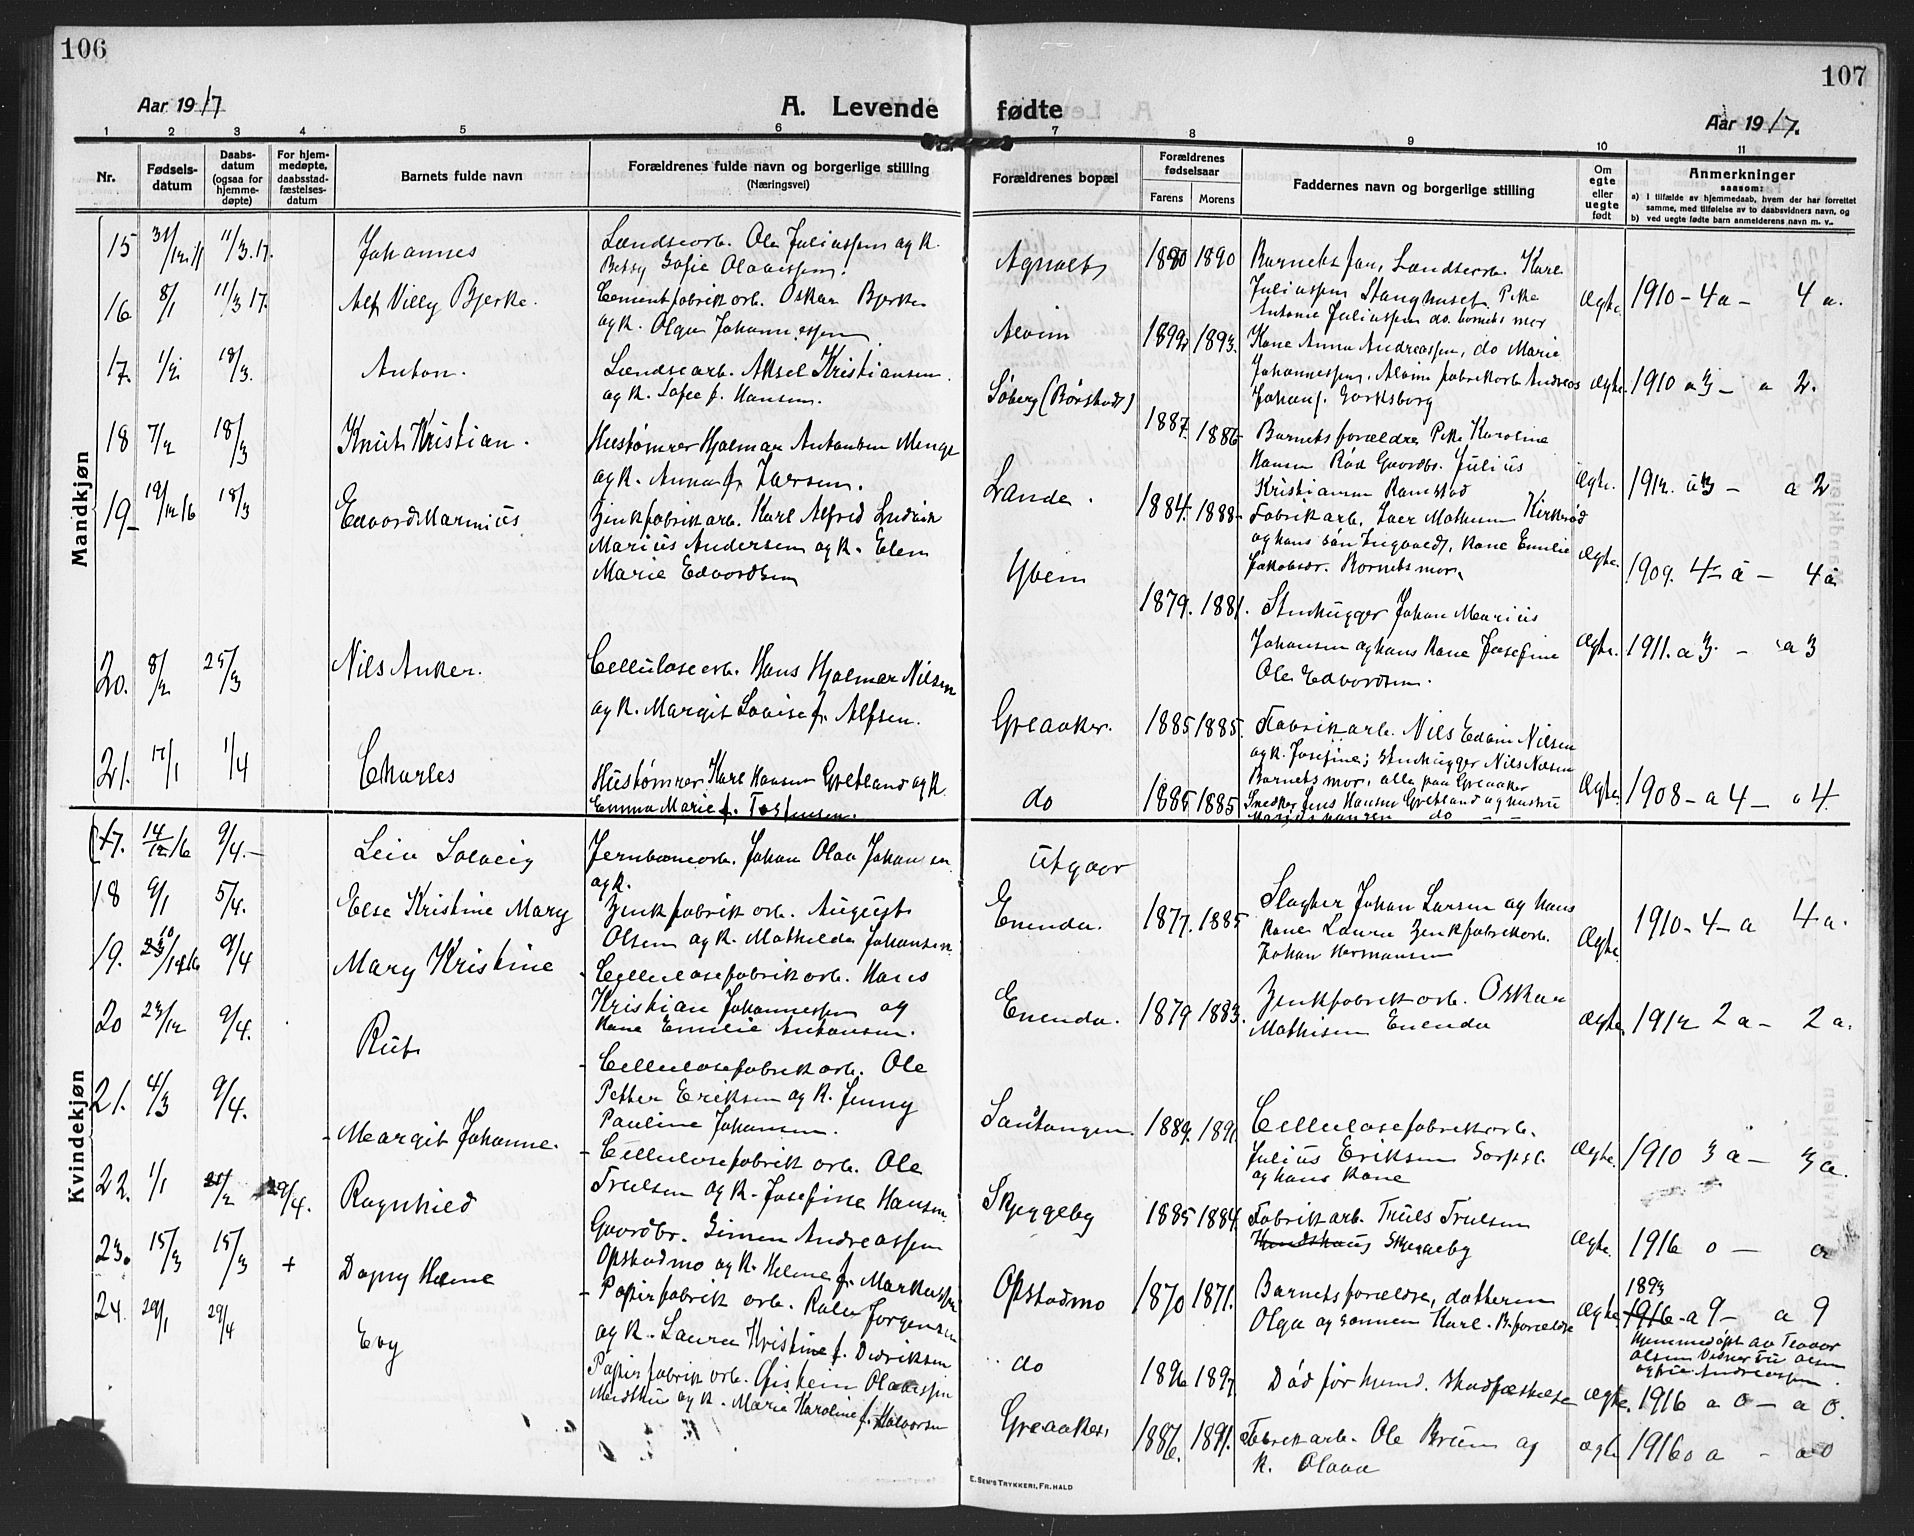 106
Aar 1917
A. Levende
1 2 3 4 5 6
Nr.
Fødsels-
datum
Daabs-
datum
(ogsaa for
hjemme-
døpte)
For hjem-
medøpte,
daabsstad-
fæstelses-
datum
Barnets fulde navn
Forældrenes fulde navn og borgerlige stilling
(Næringsvei)
Mandkjøn
15 31/12.16 11/3.17. Johannes
Lændsearb. Ole Juliussen og K.
Betsy Sofie Olavessen.
16 8/1 11/3 17. Alf Villy Bjerke.
Cementfabrikarb. Oskar Bjerke
og K. Olga Johannessen
17. 1/2. 18/3. Anton.
Lændsearb. Aksel Kristiansen
og K. Sofie f. Hansen.
18 7/2 18/3 Knut Kristian.
Hustømrer Hjalmar Antonsen Menge
og K. Anna f. Larsen.
19- 19/12 16 18/3 Edvard Marinius
Zinkfabrikarb. Karl Alfred Ludvik
Marius Andersen og K. Elen
Marie Edvardsen
20. 8/2 25/3 Nils Anker.
Cellulosearb. Hans Hjalmar Nilsen
og K. Margit Lovise f. Alfsen.
21. 17/1 1/4 Charles
Hustømrer Karl Hansen Gretland og K.
Emma Marie f. Torstensen.
Kvindekjøn
17. 14/12 16 9/4.- Leiv Solveig
Jernbanearb. Johan Olav Johansen
og K.
18 9/1 5/4. Else Kristine Mary
Zinkfabrikarb. August
Olsen og K. Mathilde Johansen
19. 10/1916 9/4 Mary Kristine
Cellulosefabrikarb. Hans
Kristian Johannessen og
Kone Emilie Antonsen.
20 23/12 9/4. Rut
Cellulosefabrikarb. Ole
Petter Eriksen og K. Jenny
Pauline Johansen.
21. 4/3 9/4. Margit Johanne.
Cellulosefabrikarb. Ole
Trulsen og K. Josefine Hansen
22. 1/1 25/2 29/4. Ragnhild
Gaardbr. Simen Andreassen
Opstadmo og K. Helene f. Markussen
23. 15/3 15/3 + Dagny Helene
Papirfabrikarb. Rolv Jorgensen
og K. Laura Kristine f. Didriksen
24. 29/1 29/4 Evy
Papirfabrikarb. Øistein Olavessen
og K. Marie Karoline f. Halvorsen
107
fødte
Aar 1917.
7 8 9 10 11
Forældrenes bopæl
Forældrenes
fødselsaar
Farens Morens
Faddernes navn og borgerlige stilling
Om
egte
eller
uegte
født
Anmerkninger
saasom:
a) I tilfælde av hjemmedaab, hvem der har forrettet
samme, med tilføielse av to daabsvidners navn, og
b) ved uegte fødte barn anmelderens navn m. v.
Agnalt 1880 1890
Barnets far, Lændsearb. Karl
Juliussen Stanghuset, Pike
Antonie Juliussen do. barnets mor
Ægte. 1910 - 4 a - 4 a.
Alvim 1892 1893.
Kone Anna Andreassen, do Marie
Johannessen, Alvim fabrikarb Andreas
Johans. Sarpsborg
Ægte. 1910 a 3 - a 2.
Søberg (Børstad) 1887. 1886-
Barnets forældre Pike Karoline
Hansen Rød Gaardbr. Julius
Kristiansen Ramstad
Ægte. 1912. a 3 - a 2
Lande. 1884. 1888-
Fabrikarb. Iver Mathisen Kirkerød
og hans søn Ingvald, Kone Emilie
Jakobsdr. Barnets mor.
Ægte. 1909. 4 a - 4 a
Yven 1879. 1881.
Stenhugger Johan Marius
Johansen og hans Kone Josefine
Ole Edvardsen.
Ægte. 1911. a 3. - a 3
Greaaker. 1885 1885.
Fabrikarb. Nils Edvin Nilsen
og K. Josefine; Stenhugger Nils Nilsen
Barnets mor, alle paa Greaaker
Ægte. 1908 - a 4 - a 4.
do 1885 1885
Snedker Jens Hansen Gretland og hustru
do
Utgaar
Enenda. 1877. 1885
Slagter Johan Larsen og hans
Kone Laura Zinkfabrikarb.
Johan Hermansen
Ægte. 1910 - 4 - a 4 a.
Enenda. 1879 1883.
Zinkfabrikarb. Oskar
Mathisen Enenda
Ægte. 1912 2 a - 2 a.
Sandtangen. 1889. 1891.
Cellulosefabrikarb.
Julius Eriksen Sarpsb.
og hans Kone
Ægte. 1910 3 a - 3 a.
Skjeggeby 1885 1884.
Fabrikarb. Truls Trulsen
Skjeggeby
Ægte. 1916 0 - 0
Opstadmo 1870 1871.
Barnets forældre, datteren
Olga og sønnen Karl. B. forældre
Ægte. 1893
1916 - a 9 - a 9
Hjemmedøpt av Teodor
Olsen
Andreassen.
do 1896 1897.
Død før hjemd. stadfæstelse
Ægte. 1916 a 0 - a 0.
Greaaker. 1886. 1891.
Fabrikarb. Ole Bruun og
K. Olava
ægte 1916 0 a - a 0
E. SEM'S TRYKKERI, FR.HALD